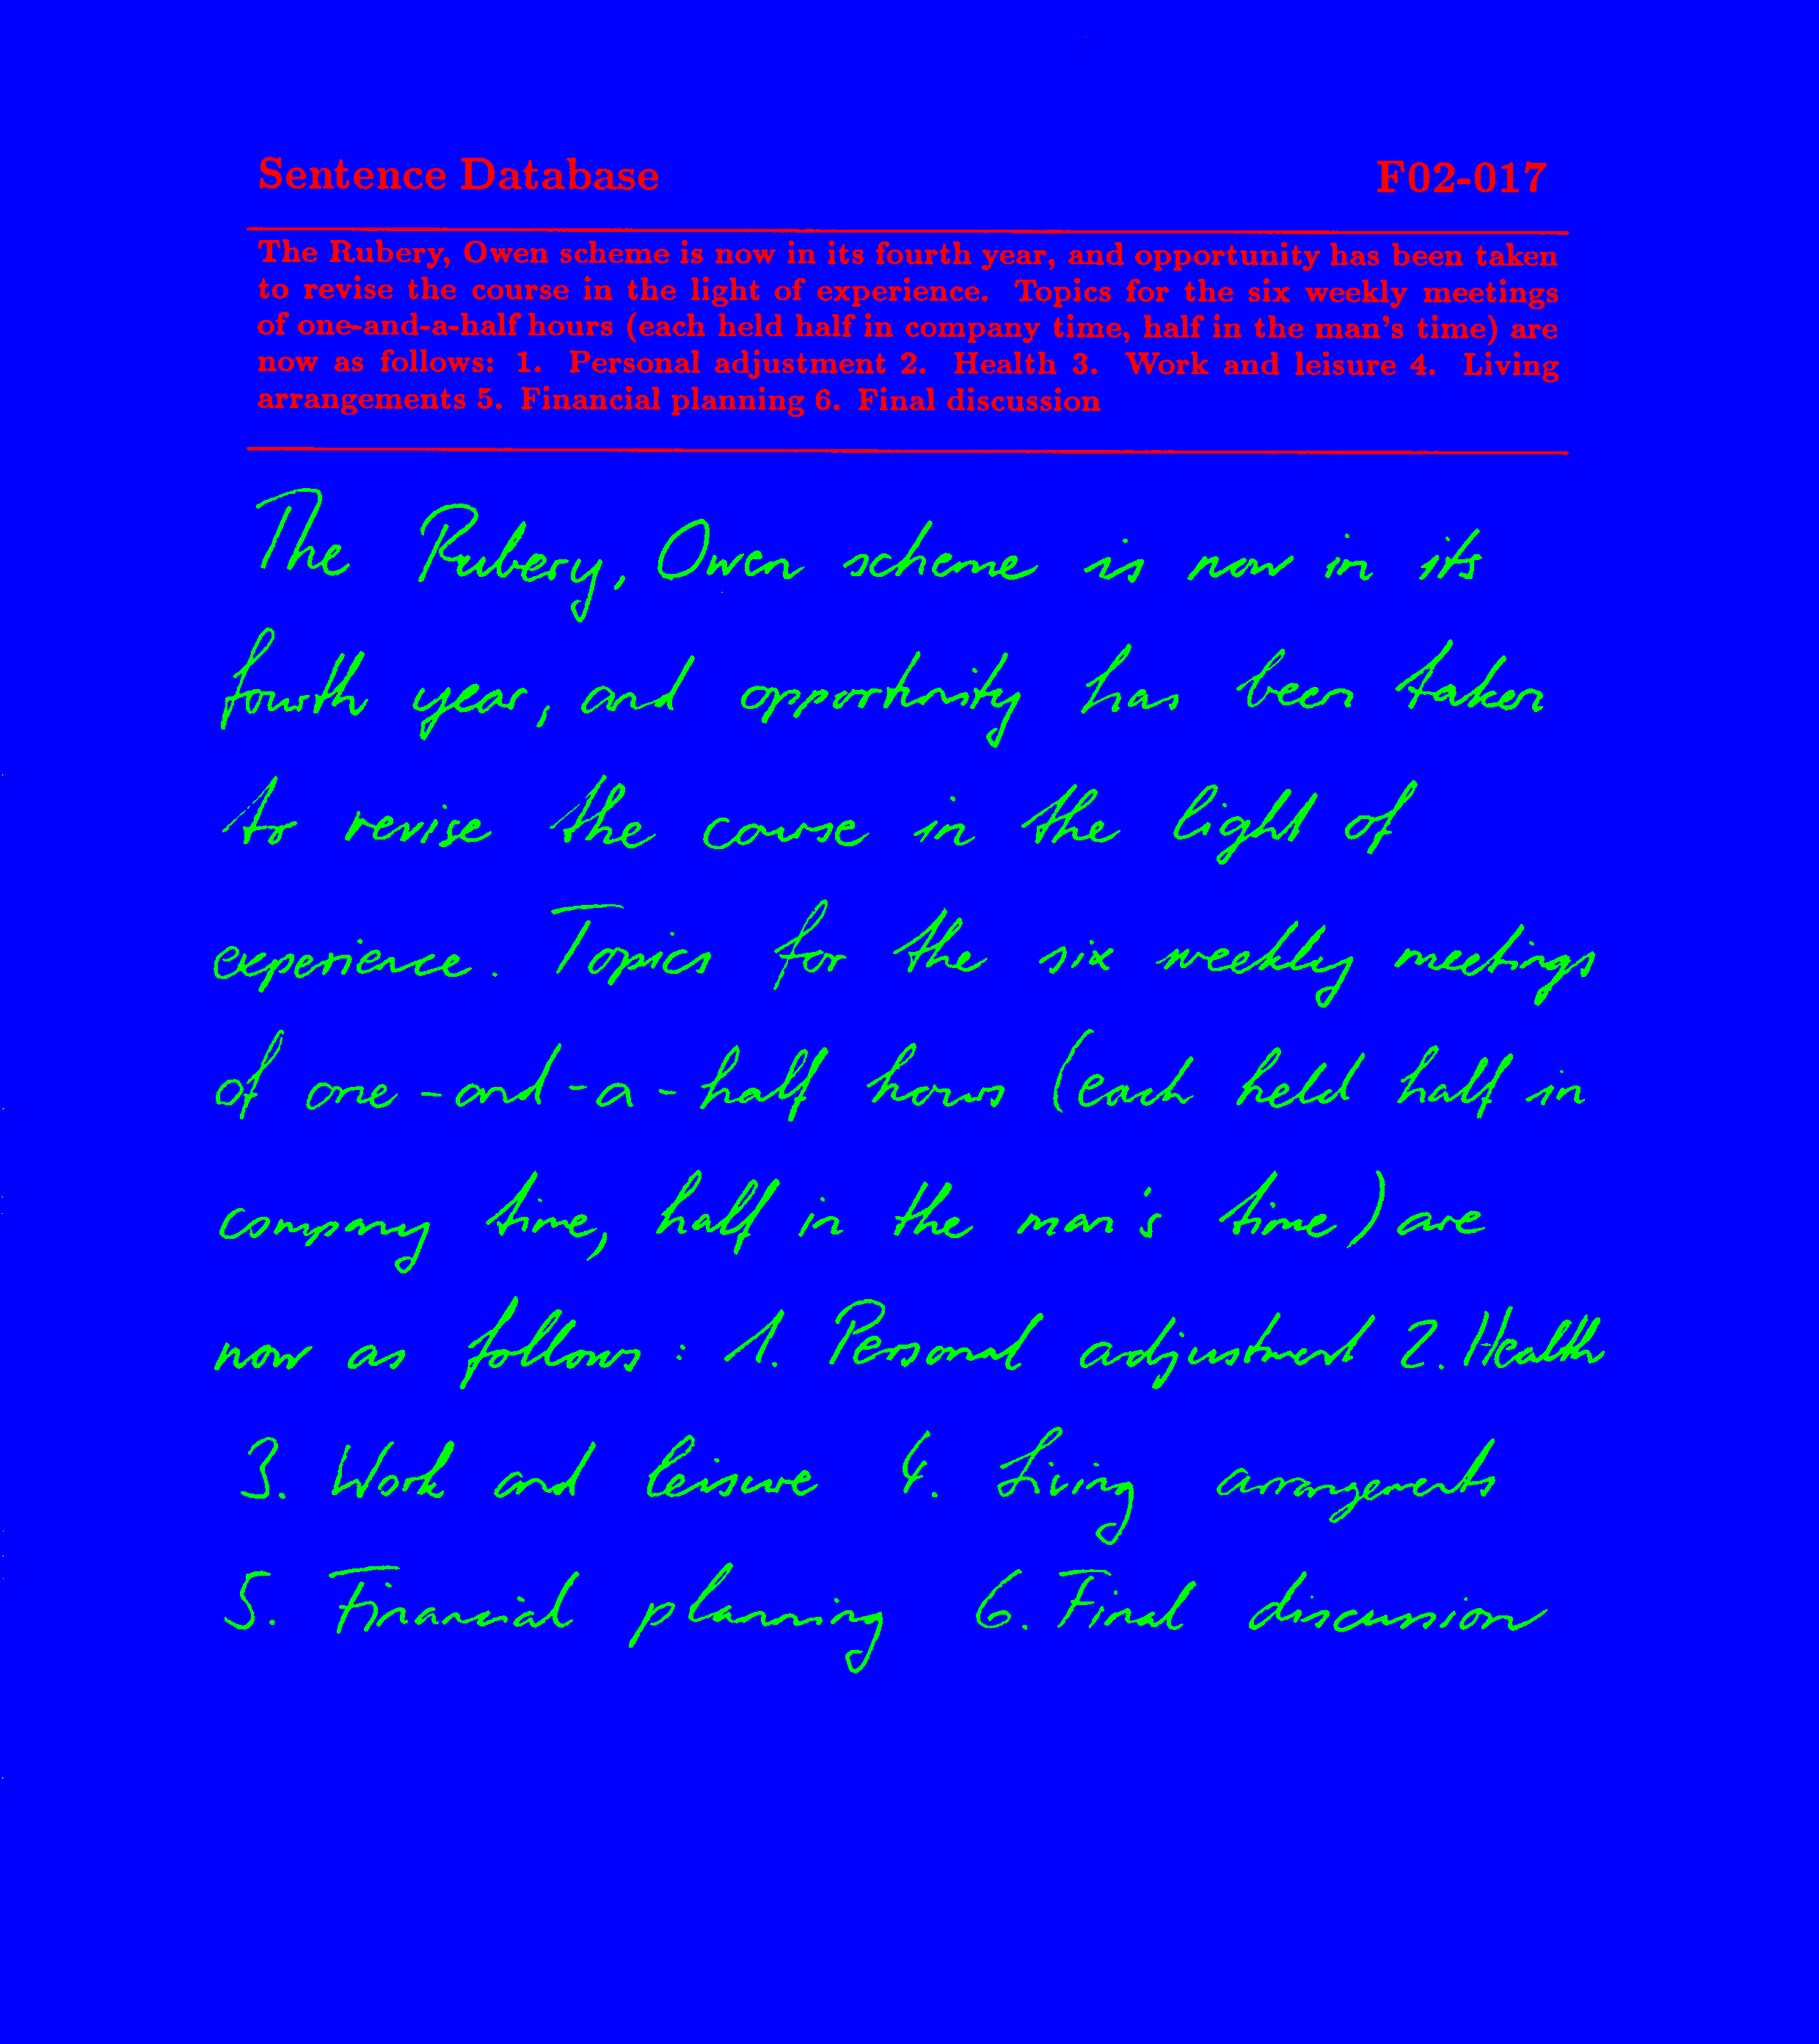 Sentence Database F02-017
The Rubery, Owen scheme is now in its fourth year, and opportunity has been taken
to revise the course in the light of experience. Topics for the six weekly meetings
of one-and-a-half hours (each held half in company time, half in the man's time) are
now as follows: 1. Personal adjustment 2. Health 3. Work and leisure 4. Living
arrangements 5. Financial planning 6. Final discussion
The Rubery, Owen scheme is now in its
fourth year, and opportunity has been taken
to revise the course in the light of
experience. Topics for the six weekly meetings
of one-and-a-half hours (each held half in
company time, half in the man's time) are
now as follows: 1. Personal adjustment 2. Health
3. Work and leisure 4. Living arrangements
5. Financial planning 6. Final discussion